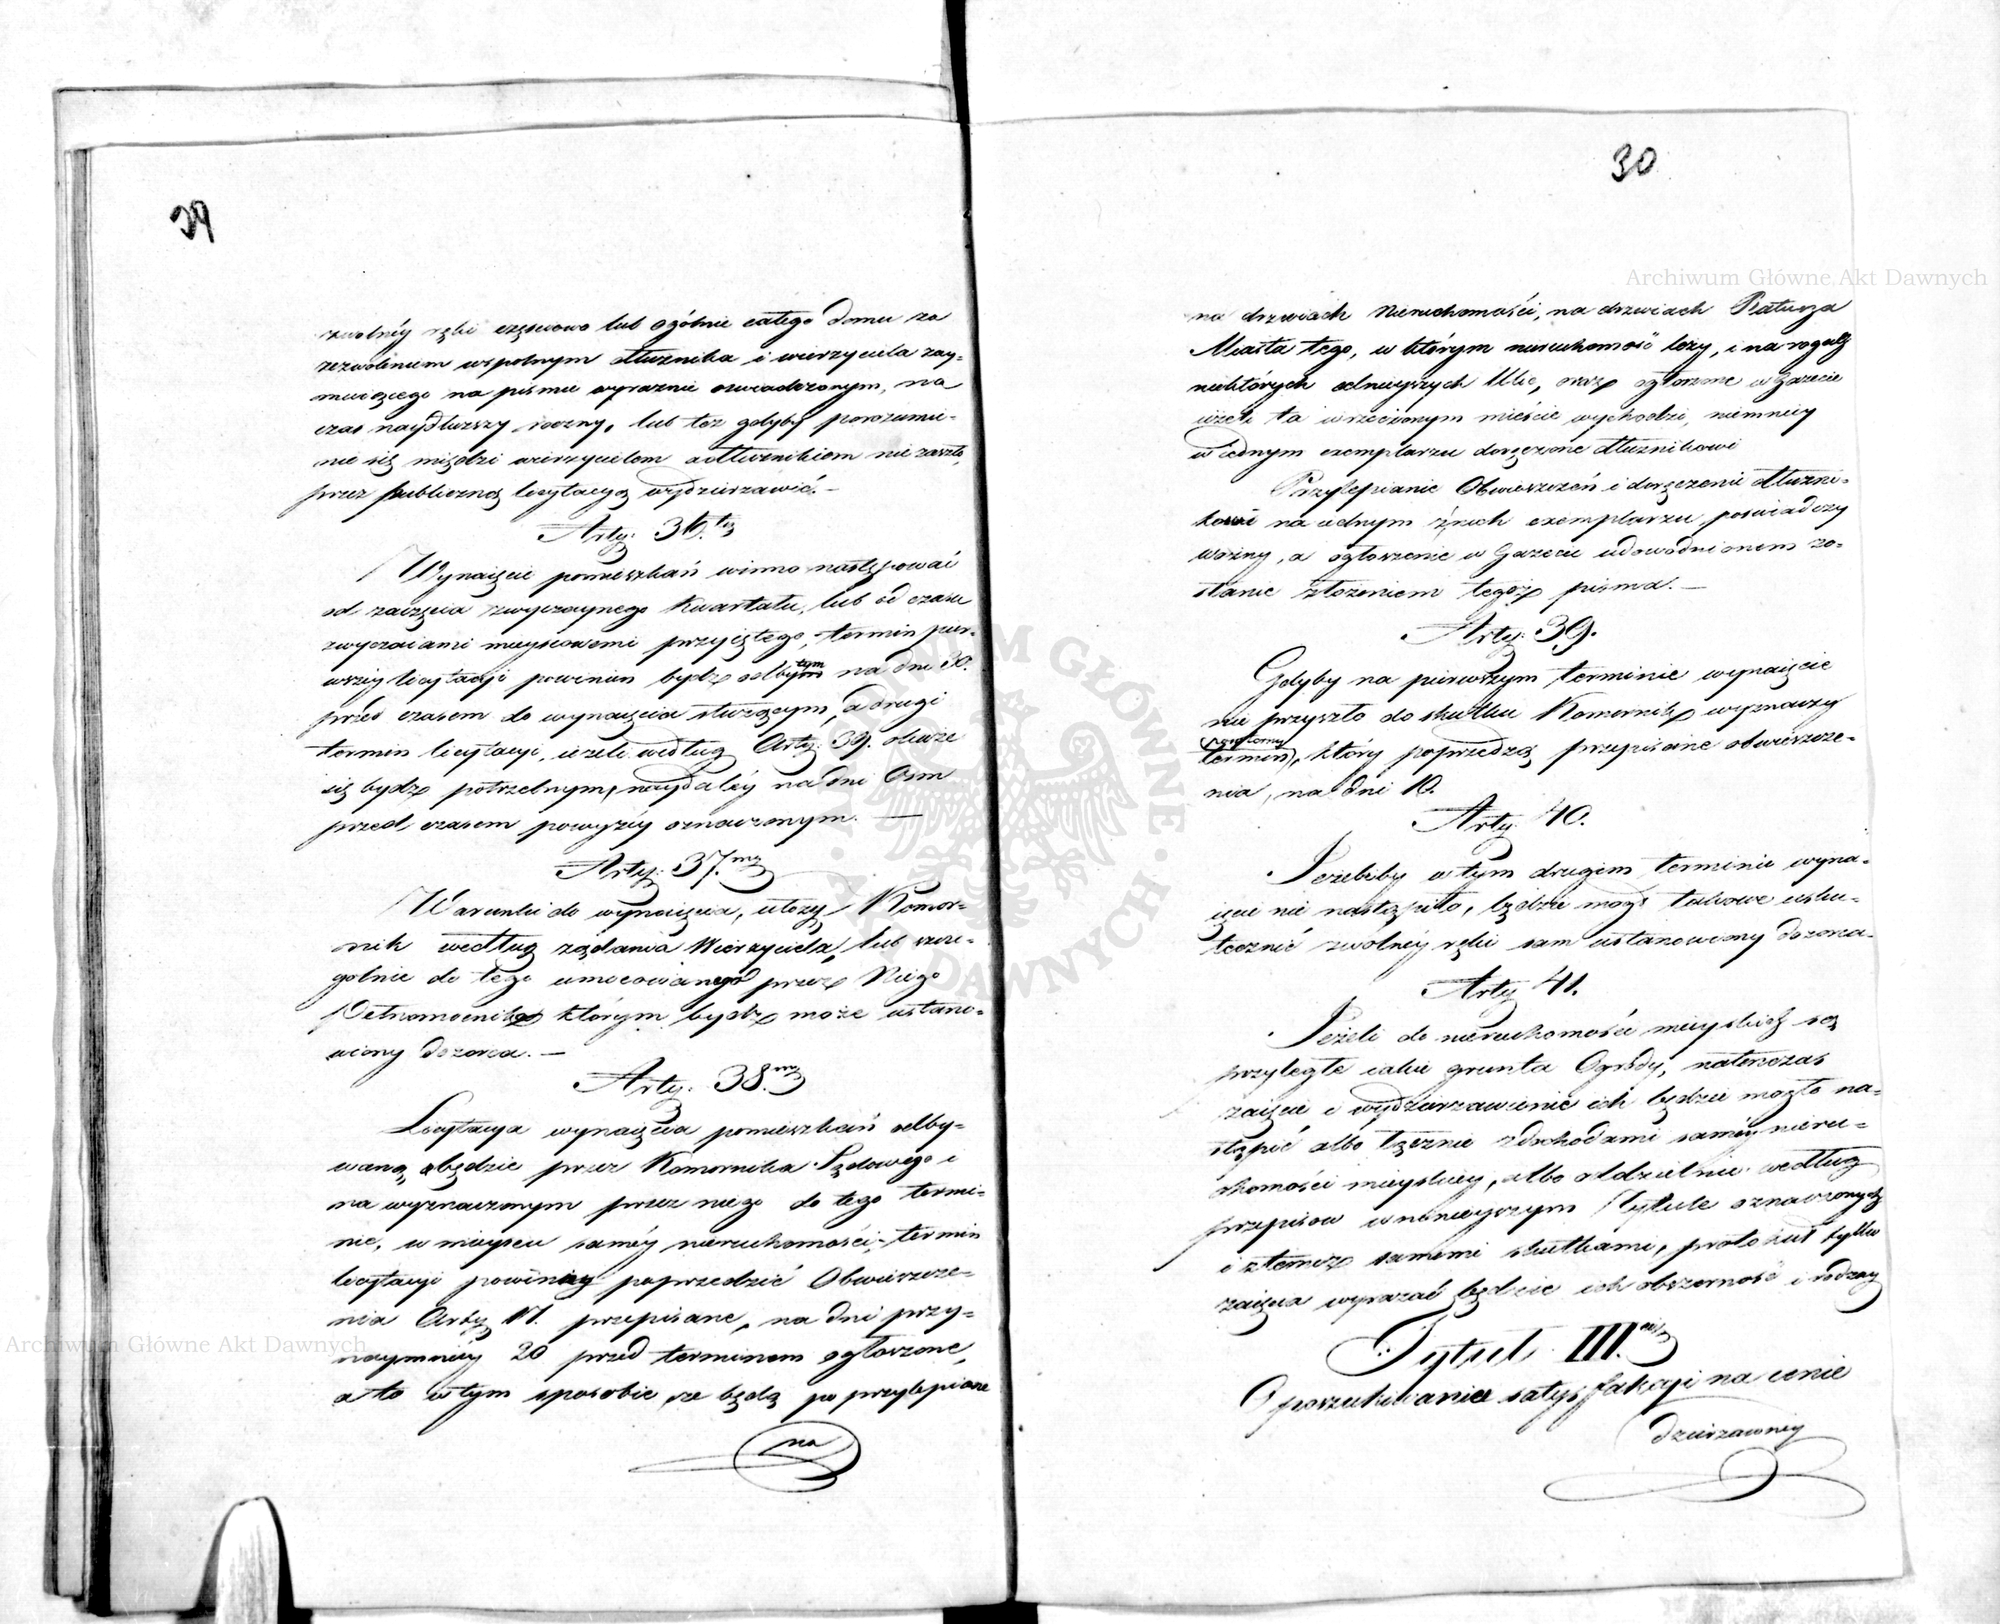 29
zwolnéy ręki częściowo lub ogólnie całego domu za
zezwoleniem wspólnym dłużnika i wierzyciela zay-
muiącego na piśmie wyraźnie oświadczonym, na
czas naydłuższy roczny, lub też gdyby porozumie-
nie się między wierzycielem a dłużnikiem nie zaszło,
przez publiczną licytacyą wydzierżawić. —
Arty. 36.ty
Wynaięcie pomieszkań winno następować
od zaczęcia zwyczaynego Kwartału, lub od czasu
zwyczaiami mieyscowemi przyiętego, termin pier-
wszy licytacyi powinien bydź odbytym na dni 30.
przed czasem do wynaięcia służącym, a drugi
termin licytacyi, ieżeli według Arty. 39. okaże
się bydź potrzebnym, naydaléy na dni Osm
przed czasem powyżéy oznaczonym. —
Arty. 37.my
Warunki do wynaięcia, ułoży Komor-
nik według żądania Wierzyciela, lub szcze-
gólnie do tego umocowanego przez Niego
Pełnomocnika którym bydź może ustano-
wiony dozorca. —
Arty. 38.my
Licytacya wynaięcia pomieszkań odby-
waną będzie przez Komornika Sądowego i
na wyznaczonym przez niego do tego termi-
nie, w mieyscu saméy nieruchomości; termin
licytacyi powinny poprzedzić Obwieszcze-
nia Arty 11. przepisane, na dni przy-
naymniéy 20 przed terminem ogłoszone,
a to w tym sposobie, że będą po przylepiane
na
30
na drzwiach Nieruchomości, na drzwiach Ratusza
Miasta tego, w którym nieruchomość leży, i na rogach
niektórych celnieyszych Ulic, oraz ogłoszone w Gazecie
ieżeli ta w rzeczonym mieście wychodzi, niemniéy
w iednym exemplarzu doręczone dłużnikowi
Przylepianie Obwieszczeń i doręczenie dłużni-
kowi na iednym z nich exemplarzu, poświadczy
woźny, a ogłoszenie w Gazecie udowodnionem zo-
stanie złożeniem tegoż pisma. —
Arty. 39.
Gdyby na pierwszym terminie wynaięcie
nie przyszło do skutku Komornik wyznaczy
powtórny
termin, który poprzedzą przepisane obwieszcze-
nia, na dni 10.
Arty. 40.
Jeżeliby w tym drugim terminie wyna-
ięcie nie nastąpiło, będzie mógł takowe usku-
tecznić z wolnéy ręki sam ustanowiony dozorca.
Arty 41.
Jeżeli do nieruchomości mieyskich są
przyległe iakie grunta Ogrody, natenczas
zaięcie i wydzierżawienie ich będzie mogło na-
stąpić albo łącznie z dochodami saméy nieru-
chomości mieyskiéy, albo oddzielnie według
przepisów w ninieyszym Tytule oznaczonych
i z temiż samemi skutkami, protokuł tylko
zaięcia wyrażać będzie ich obszerność i rodzay
Tytuł III.ci
O poszukiwaniu satysfakcyi na cenie
dzierżawnéy
Archiwum Główne Akt Dawnych
Archiwum Główne Akt Dawnych
ARCHIWUM GŁÓWNE AKT DAWNYCH